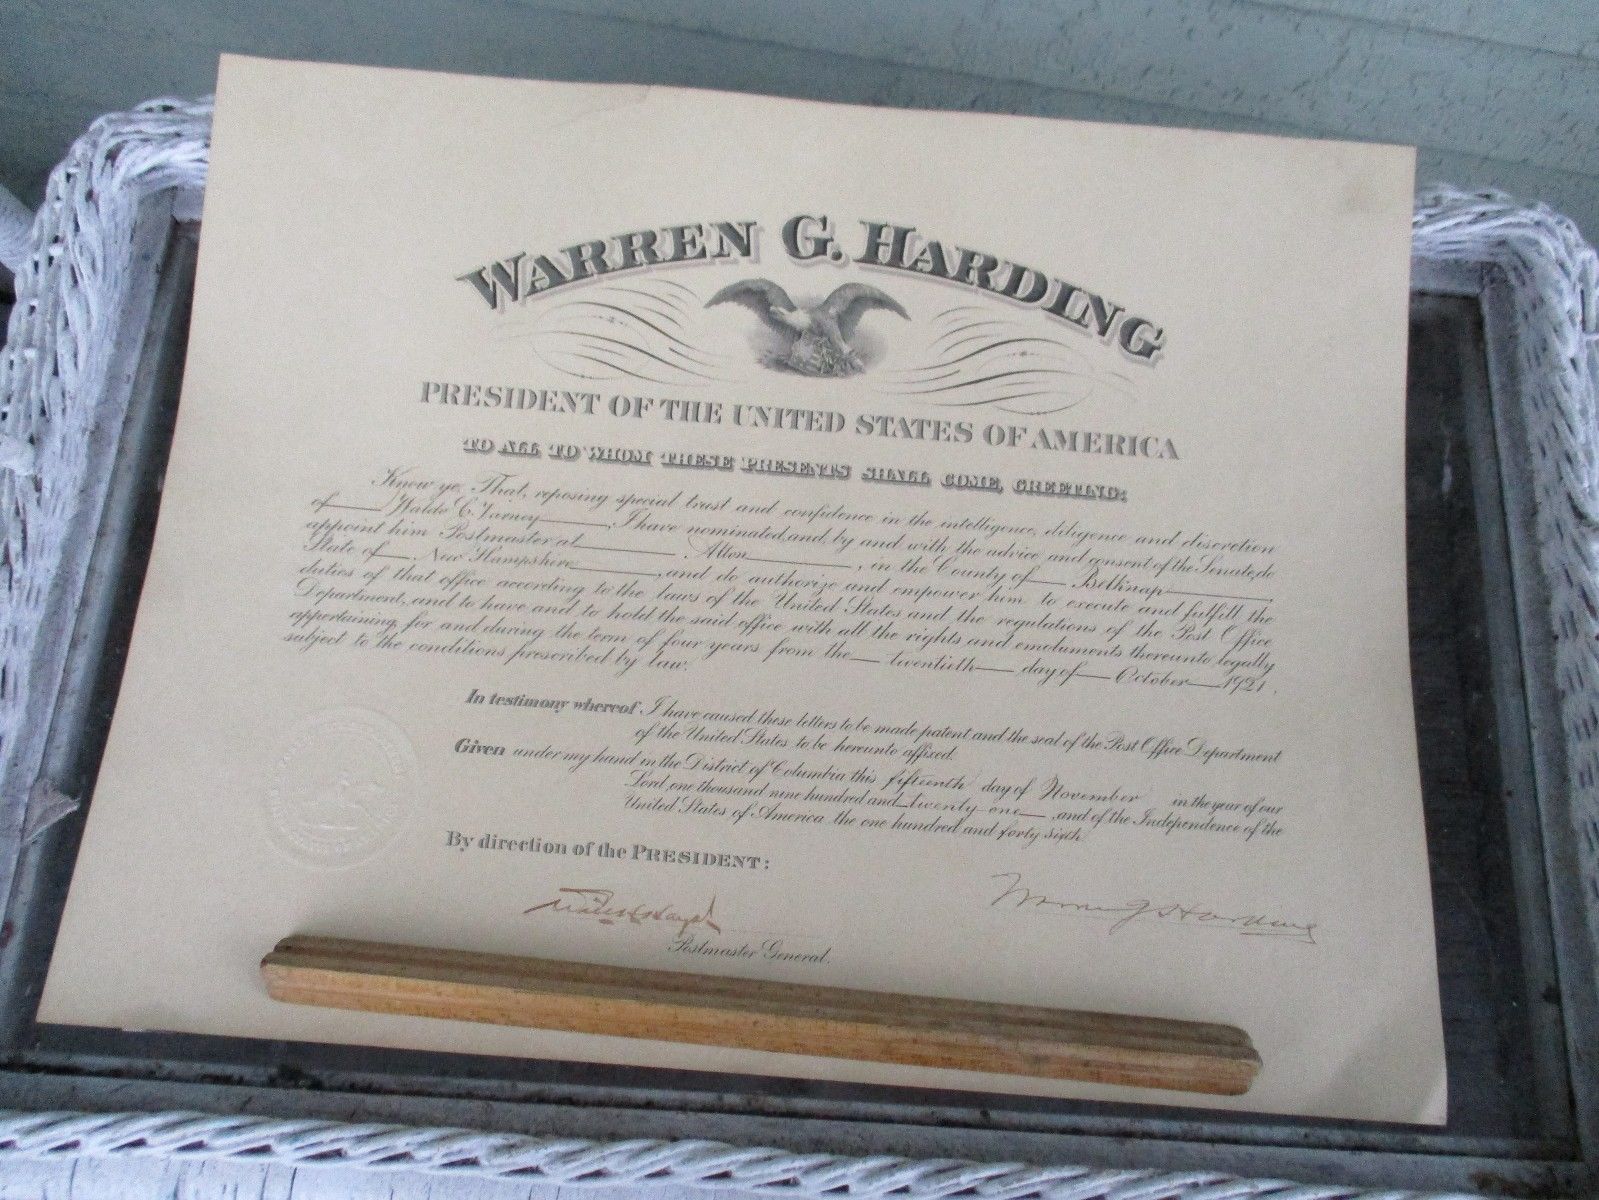 WARREN G. HARDING
PRESIDENT OF THE UNITED STATES OF AMERICA
TO ALL TO WHOM THESE PRESENTS SHALL COME, GREETING:
Know ye, That, reposing special trust and confidence in the intelligence, diligence and discretion
of Waldo C. Varney, I have nominated, and, by and with the advice and consent of the Senate, do
appoint him Postmaster at Alton, in the County of Belknap,
State of New Hampshire, and do authorize and empower him to execute and fulfill the
duties of that office according to the laws of the United States and the regulations of the Post Office
Department, and to have and to hold the said office with all the rights and emoluments thereunto legally
appertaining, for and during the term of four years from the twentieth day of October 1921,
subject to the conditions prescribed by law.
In testimony whereof I have caused these letters to be made patent and the seal of the Post Office Department
of the United States to be hereunto affixed.
Given under my hand in the District of Columbia this fifteenth day of November in the year of our
Lord one thousand nine hundred and twenty one, and of the Independence of the
United States of America the one hundred and forty sixth.
By direction of the PRESIDENT:
Warren G Harding
Postmaster General.